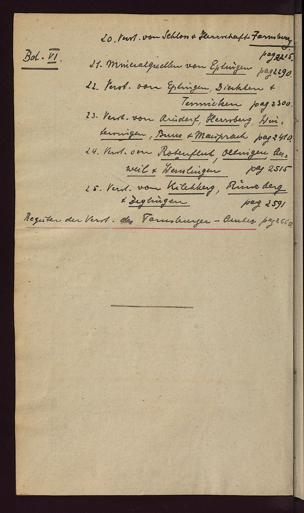 20. Verst. von Schloss & Herrschaft Farnsburg
pag 2215.
Bd. VI.
21. Mineralquellen von Eptingen pag 2290.
22. Verst. von Eptingen, Diepflen &
Tennicken pag 2300.
23. Verst. von Arisdorf, Hersberg, Win-
tersingen, Buus & Maisprach pag 2410
24. Verst. von Rotenfluh, Oltingen, An-
weil & Wenslingen pag 2515
25. Verst. von Kilchberg, Rüneberg
& Zeglingen pag 2591
Register der Verst. des Farnsburger-Amtes pag